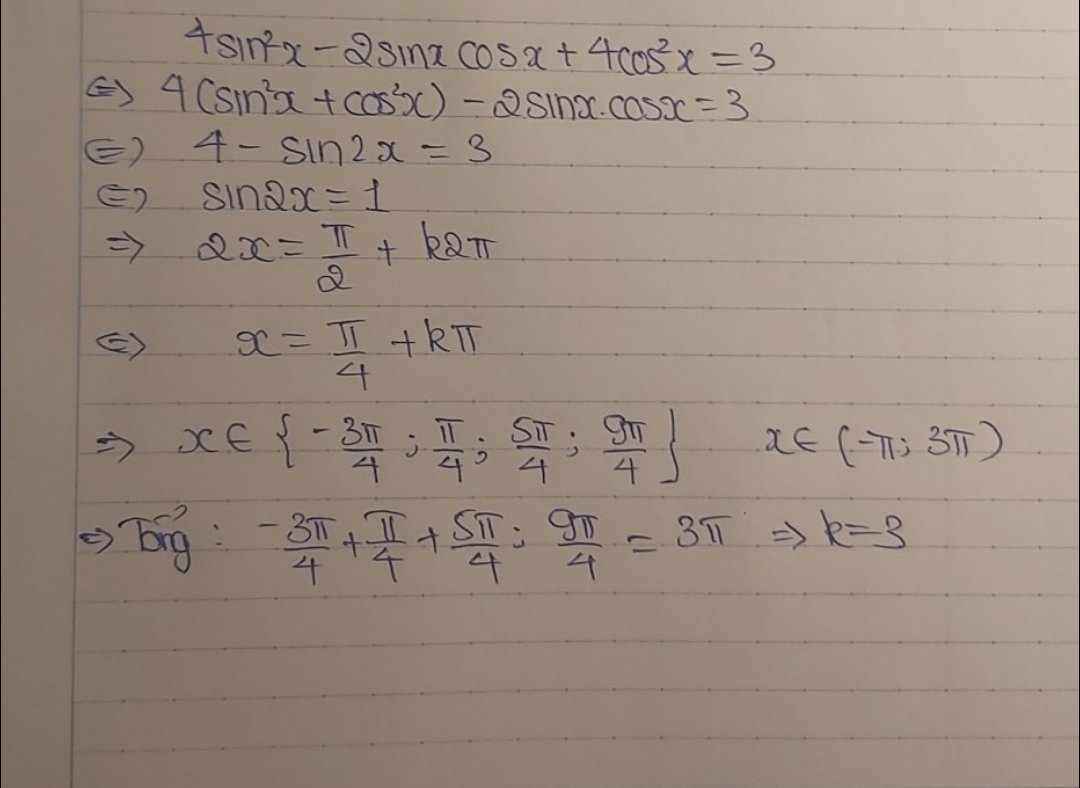 4sin²x - 2sinx cosx + 4cos²x = 3
⇔ 4(sin²x + cos²x) - 2sinx.cosx = 3
⇔ 4 - sin2x = 3
⇔ sin2x = 1
⇒ 2x = π/2 + k2π
⇔ x = π/4 + kπ
⇒ x ∈ { -3π/4 ; π/4 ; 5π/4 ; 9π/4 } x ∈ (-π; 3π)
⇔ Tổng : -3π/4 + π/4 + 5π/4 ; 9π/4 = 3π ⇒ k=3